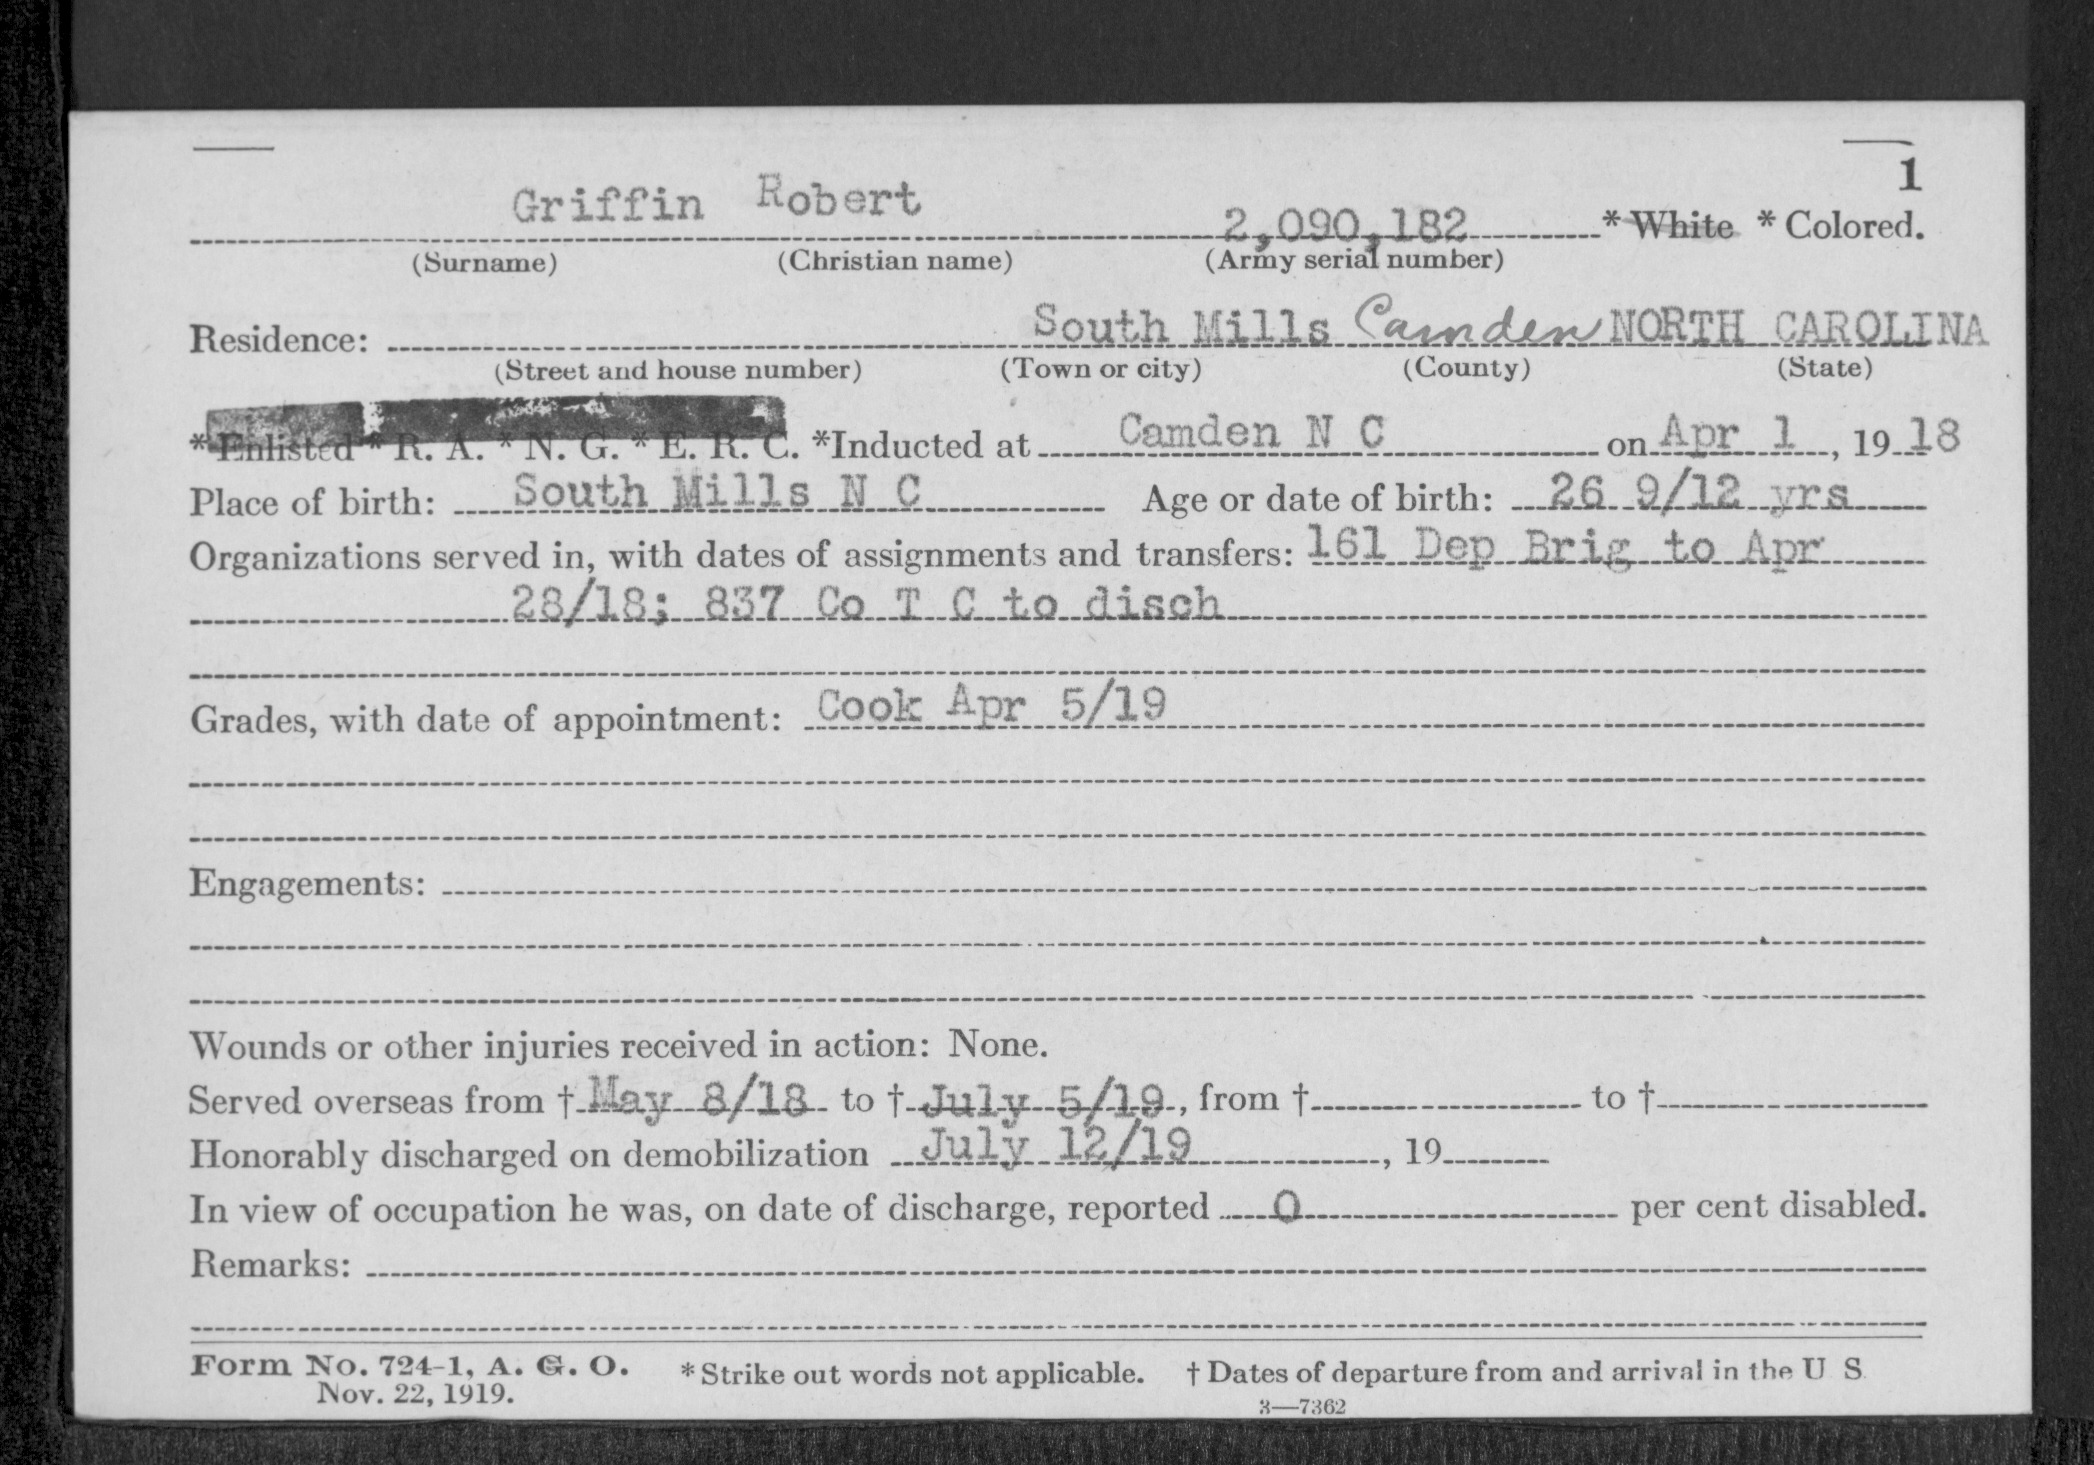 1
Griffin Robert 2,090,182 * White * Colored.
(Surname) (Christian name) (Army serial number)
Residence: South Mills Camden NORTH CAROLINA
(Street and house number) (Town or city) (County) (State)
* Enlisted * R. A. * N. G. * E. R. C. *Inducted at Camden N C on Apr 1, 19 18
Place of birth: South Mills N C Age or date of birth: 26 9/12 yrs
Organizations served in, with dates of assignments and transfers: 161 Dep Brig to Apr
28/18; 837 Co T C to disch
Grades, with date of appointment: Cook Apr 5/19
Engagements:
Wounds or other injuries received in action: None.
Served overseas from † May 8/18 to † July 5/19, from † to †
Honorably discharged on demobilization July 12/19, 19
In view of occupation he was, on date of discharge, reported 0 per cent disabled.
Remarks:
Form No. 724-1, A. G. O. * Strike out words not applicable. † Dates of departure from and arrival in the U S.
Nov. 22, 1919.
3—7362